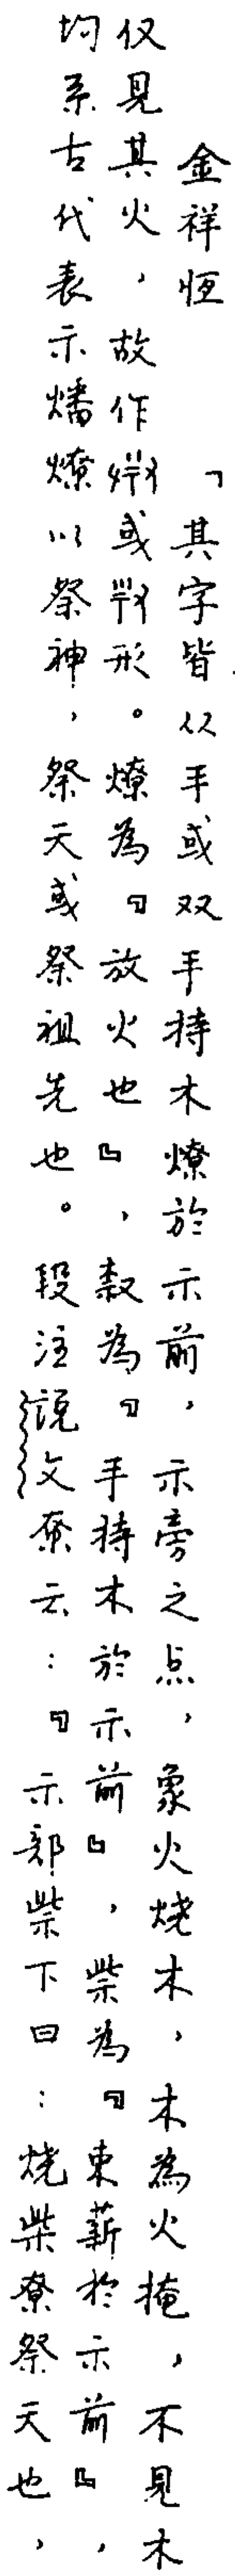 金祥恆 「其字皆从手或双手持木燎於示前,示旁之点,象火烧木,木為火掩,不見木
仅見其火,故作或形。燎為『放火也』,叙為『手持木於示前』,柴為『束薪於示前』,
均系古代表示燔燎以祭神,祭天或祭祖先也。段注說文尞云:『示部柴下曰:烧柴尞祭天也,